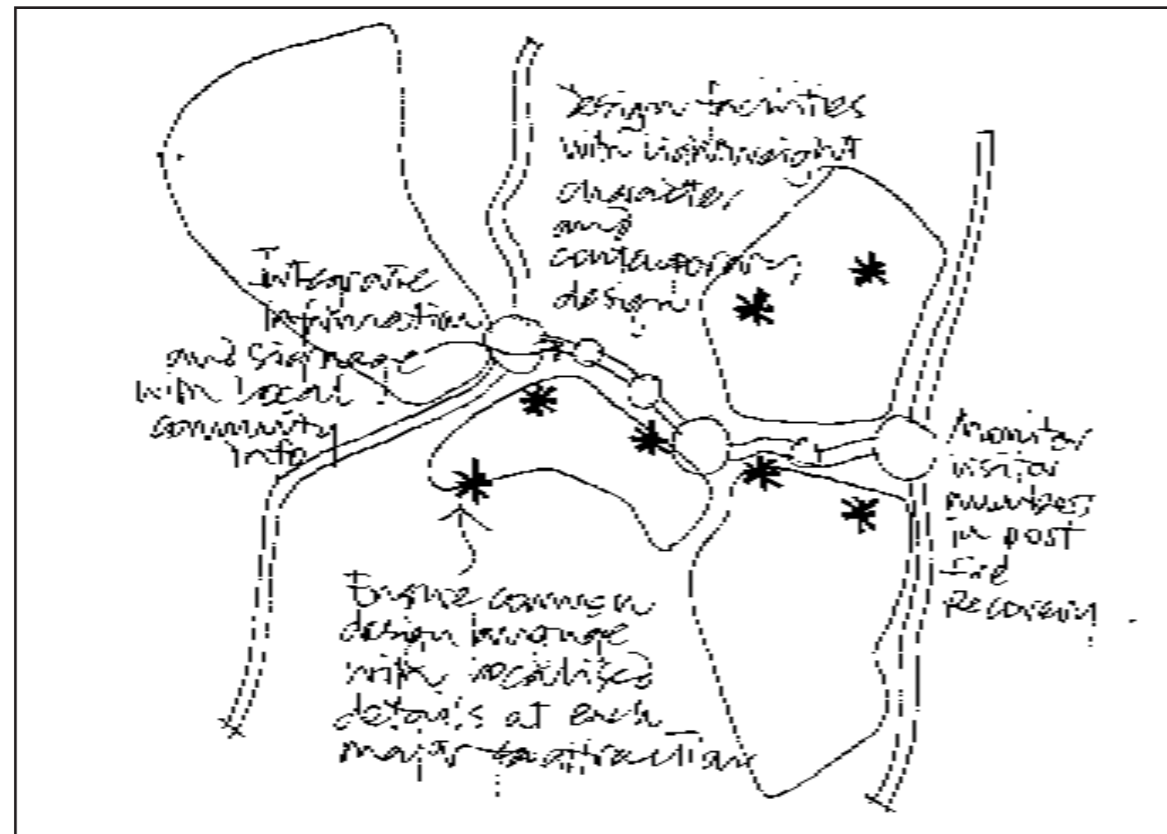 Design facilities
with lightweight
character
and
contemporary
design
Integrate
information
and signage
with local
community
info
Monitor
visitor
numbers
in post
fire
Recovery
Ensure common
design language
with localised
details at each
major attraction